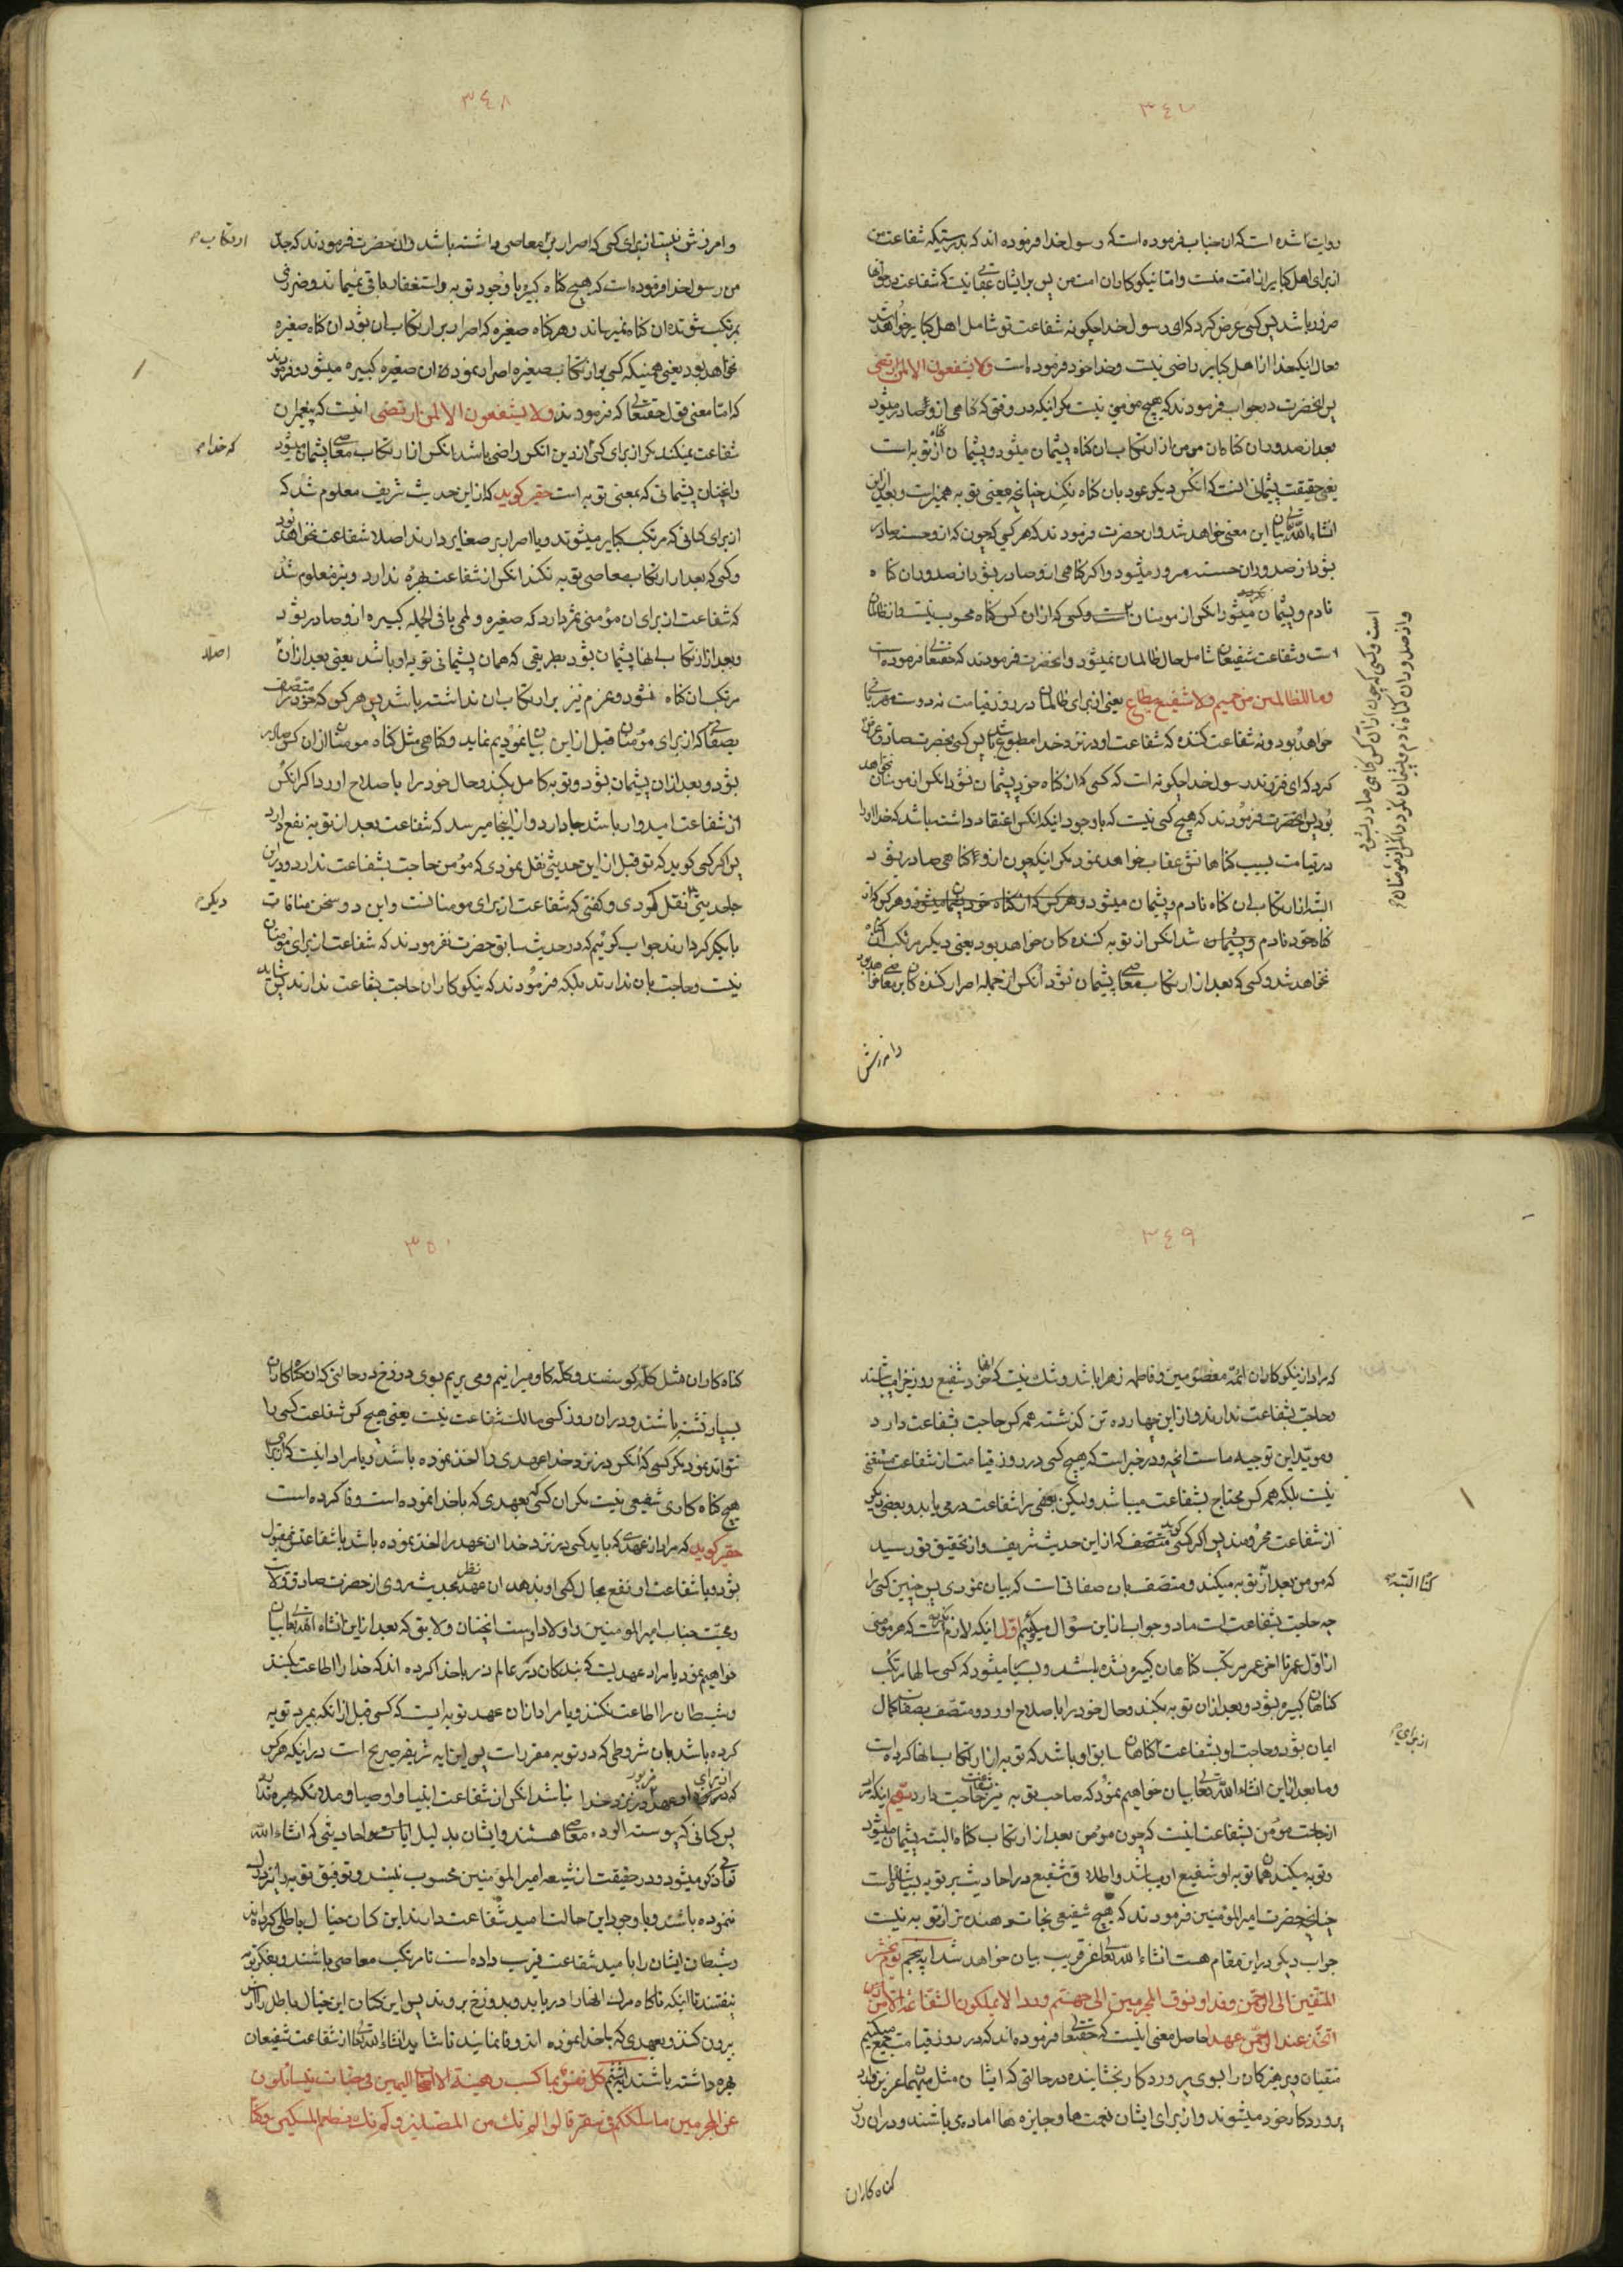 ٣٤٧
روایت شده است که ان جناب فرموده است که رسول خدا فرموده اند که بدرستیکه شفاعت من
از برای اهل کبایر از امت منست و اما نیکوکاران امت من پس بر ایشان عقابی نیست که شفاعت در حق انها
ضرور باشد پس کسی عرض کرد که ای رسول خدا چکونه شفاعت تو شامل اهل کبایر خواهد شد
و حال انکه خدا از اهل کبایر راضی نیست و خدا خود فرموده است ولا یشفعون الا لمن ارتضی
پس انحضرت در جواب فرمودند که هیچ مومنی نیست مکر اینکه در وقتی که کناهی از او صادر میشود
بعد از صدور ان کناه ان مومن از ارتکاب ان کناه پشیمان میشود و پشیمان از کناه توبه است
یعنی حقیقت پشیمانی انست که انکس دیکر عود بان کناه نکند چنانچه معنی توبه همین است و بعد از این
انشاء الله تعالی بیان این معنی خواهد شد و ان حضرت فرمودند که هر کسی که چون که از او حسنه صادر
شود از صدور ان حسنه مسرور میشود و اکر کناهی از او صادر شود از صدور ان کناه
نادم و پشیمان میشود انکس از مومنان است و کسی که از ان کس کناه محسوب نیست و از ظالمان
است و شفاعت شفیعان شامل حال ظالمان نمیشود و انحضرت فرمودند که حقتعالی فرموده است
وما للظالمین من حمیم ولا شفیع یطاع یعنی از برای ظالمان در روز قیامت نه دوست مهربانی
خواهد بود و نه شفاعت کننده که شفاعت او در نزد خدا مطبوع باشد پس کسی بحضرت صادق عرض
کرد که ای فرزند رسول خدا چکونه است که کسی که از کناه خود پشیمان نشود انکس از مومنان نخواهد
بود پس انحضرت فرمودند که هیچ کسی نیست که با وجود اینکه انکس اعتقاد داشته باشد که خدا او را
در قیامت بسبب کناهانش عقاب خواهد نمود مکر اینکه چون از او کناهی صادر شود
البته از ارتکاب ان کناه نادم و پشیمان میشود و هر کس که از کناه خود پشیمان میشود و هر کس که از
کناه خود نادم و پشیمان شد انکس از توبه کننده کان خواهد بود یعنی دیکر مرتکب ان کناه
نخواهد شد و کسی که بعد از ارتکاب معاصی پشیمان نشود انکس از جمله اصرار کننده کان بر معاصی خواهد بود
است و کسی که چون از ان کس کناهی صادر شود
و از صدور ان کناه نادم و پشیمان نکردد انکس از مومنان
وامرزش
٣٤٨
وامرزش نیست از برای کسی که اصرار بر معاصی داشته باشد و ان حضرت فرمودند که جد
من رسول خدا فرموده است که هیچ کناه کبیره با وجود توبه و استغفار باقی نمیماند و ضرری
بمرتکب شونده ان کناه نمیرساند و هر کناه صغیره که اصرار بر ارتکاب ان بشود ان کناه صغیره
نخواهد بود یعنی همینکه کسی بر ارتکاب صغیره اصرار نمود ان صغیره کبیره میشود و فرمودند
که اما معنی قول حقتعالی که فرمودند ولا یشفعون الا لمن ارتضی انیست که پیغمبران
شفاعت نمیکنند مکر از برای کسی که از دین انکس راضی باشد انکس از ارتکاب معاصی پشیمان میشود
و انچنان پشیمانی که بمعنی توبه است حقیر کوید که از این حدیث شریف معلوم شد که
از برای کسانی که مرتکب کبایر میشوند و یا اصرار بر صغایر دارند اصلا شفاعت نخواهد بود
و کسی که بعد از ارتکاب معاصی توبه نکند انکس از شفاعت بهره ندارد و نیز معلوم شد
که شفاعت از برای ان مؤمنی ثمر دارد که صغیره و لمی یا فی الجمله کبیره از او صادر شود
و بعد از ارتکاب انها پشیمان بشود بطریقی که همان پشیمانی توبه او باشد یعنی بعد از ان
مرتکب ان کناه نشود و عزم نیز بر ارتکاب ان نداشته باشد پس هر کس که خود را متصف
بصفاتی که از برای مؤمنان قبل از این بیان نمودیم نماید و کناهی مثل کناه مومنان از ان کس صادر
بشود و بعد از ان پشیمان بشود و توبه کامل بکند و حال خود را باصلاح اورد اکر انکس
از شفاعت امیدوار باشد جا دارد و از اینجا میرسد که شفاعت بعد از توبه نفع دارد
پس اکر کسی کوید که تو قبل از این حدیثی نقل نمودی که مؤمن حاجت بشفاعت ندارد و در این
جا حدیثی نقل کردی و کفتی که شفاعت از برای مومنانست و این دو سخن منافات
با یکدیکر دارند جواب کوئیم که در حدیث سابق حضرت نفرمودند که شفاعت از برای مؤمنان
نیست و حاجت بان ندارند بلکه فرمودند که نیکوکاران حاجت بشفاعت ندارند پس شاید
ارتکاب
که خدا
اصلا
دیکر
٣٤٩
که مراد از نیکوکاران ائمه معصومین و فاطمه زهرا باشد و شک نیست که انها خود شفیع روز جزا میباشند
و حاجت بشفاعت ندارند و از این چهارده تن کذشته همه کس حاجت بشفاعت دارد
و مؤید این توجیه ماست انچه در خبر است که هیچ کسی در روز قیامت از شفاعت مستغنی
نیست بلکه همه کس محتاج بشفاعت میباشد ولیکن بعضی را شفاعت درمی یابد و بعضی دیکر
از شفاعت محرومند پس اکر کسی کوید که از این حدیث شریف و از تحقیق تو رسید
که مومن بعد از توبه میکند و متصف بان صفاتی است که بیان نمودی پس چنین کسی را
چه حاجت بشفاعت است ما دو جواب از این سؤال میکوئیم اول اینکه لازم نکرده است که هر مؤمنی
از اول عمر تا اخر عمر مرتکب کناهان کبیره نشده باشد و بسیار میشود که کسی سالها مرتکب
کناهان کبیره بشود و بعد از ان توبه بکند و حال خود را باصلاح اورد و متصف بصفات کمال
ایمان بشود و حاجت او بشفاعت کناهان سابق او باشد که توبه از ارتکاب انها کرده است
و ما بعد از این انشاء الله تعالی بیان خواهیم نمود که صاحب توبه نیز بشفاعت حاجت دارد
احتیاجت مؤمن بشفاعت اینست که چون مؤمن بعد از ارتکاب کناه البته پشیمان میشود
و توبه میکند همان توبه او شفیع او میباشد و اطلاق شفیع در احادیث بر توبه بسیار شده است
چنانچه حضرت امیر المؤمنین فرمودند که هیچ شفیعی نجات دهنده تر از توبه نیست
جواب دیکر در این مقام هست انشاء الله تعالی عنقریب بیان خواهد شد ایه پنجم یوم نحشر
المتقین الی الرحمن وفدا ونسوق المجرمین الی جهنم وردا لا یملکون الشفاعة الا من
اتخذ عند الرحمن عهدا حاصل معنی اینست که حقتعالی فرموده اند که در روز قیامت جمع میکنیم
متقیان و پرهیزکاران را بسوی پروردکار بخشاینده در حالتی که ایشان مثل مهمان عزیز وارد
پروردکار خود میشوند و از برای ایشان نعمت ها و جایزه ها اماده می باشند و در ان روز
کنا البته
از برای
کناه کاران
٣٥٠
کناه کاران مثل کله کوسفند و کله کاو میرانیم و می بریم بسوی دوزخ در حالتی که ان کناه کاران
بسیار تشنه باشند و در ان روز کسی مالک شفاعت نیست یعنی هیچ کس شفاعت کسی را
نتواند نمود مکر کسی که انکس در نزد خدا عهدی را اخذ نموده باشد و یا مراد اینست که از برای
هیچ کناه کاری شفیعی نیست مکر ان کسی که بعهدی که با خدا نموده است وفا کرده است
حقیر کوید که مراد از عهدی که باید کسی در نزد خدا ان عهد را اخذ نموده باشد یا شفاعتش قبول
بشود و یا شفاعت او نفع بحال کسی او بدهد ان عهد نظر بحدیث مروی از حضرت صادق ولایت
و محبت جناب امیر المومنین و اولاد اوست انچنان ولایتی که بعد از این انشاء الله تعالی بیان
خواهیم نمود یا مراد عهدیست که بندکان در عالم ذر با خدا کرده اند که خدا را اطاعت بکنند
و شیطان را اطاعت نکنند و یا مراد از ان عهد توبه ایست که کسی قبل از انکه بمیرد توبه
کرده باشد بان شروطی که در توبه مقرر است پس این ایه شریفه صریح است در اینکه هر کس
که از برای او عهد مزبور در نزد خدا نباشد انکس از شفاعت انبیا و اوصیا و ملائکه بهره ندارد
پس کسانی که پیوسته الوده معاصی هستند و ایشان بدلیل ایات و احادیثی که انشاء الله
تعالی ذکر میشود و در حقیقت از شیعه امیر المؤمنین محسوب نیستند و توفیق توبه را نیز درک
ننموده باشند و با وجود این حالت امید شفاعت دارند این کسان خیال باطلی کرده اند
و شیطان ایشان را بامید شفاعت فریب داده است تا مرتکب معاصی باشند و بفکر توبه
نیفتند تا اینکه ناکاه مرک انها را دریابد و بدوزخ بروند پس این کسان این خیال باطل را از سر
بیرون کنند و بعهدی که با خدا نموده اند وفا نمایند تا شاید انشاء الله تعالی از شفاعت شفیعان
بهره داشته باشند ایه ششم کل نفس بما کسبت رهینة الا اصحاب الیمین فی جنات یتسائلون
عن المجرمین ما سلککم فی سقر قالوا لم نک من المصلین ولم نک نطعم المسکین وکنا